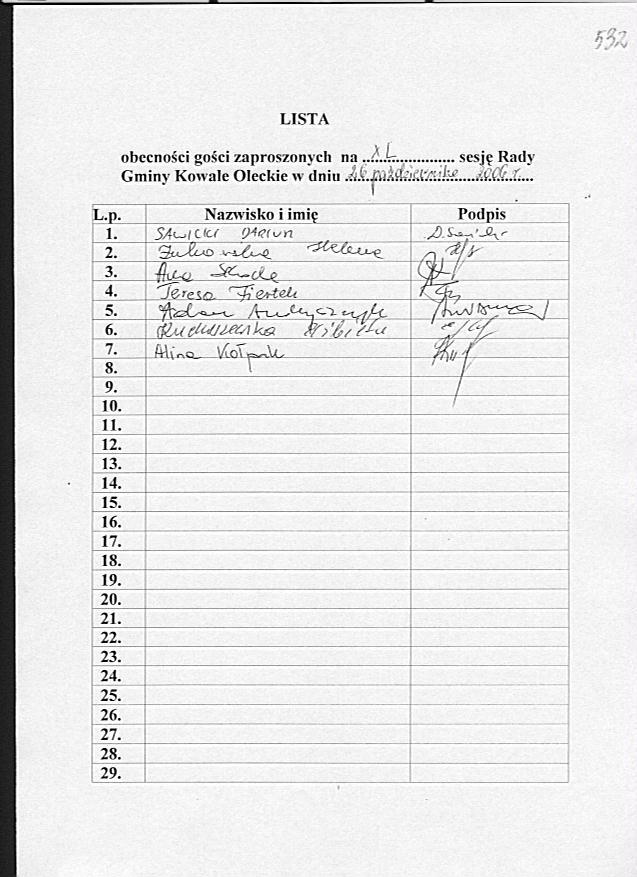 532
LISTA
obecności gości zaproszonych na ..XL.. sesję Rady
Gminy Kowale Oleckie w dniu 26 października 2006 r.
L.p. Nazwisko i imię Podpis
1. SAWICKI DARIUSZ
2. Żukowska Helena
3. Ana
4. Teresa Fiertek
5. Adam Andryczyk
6.
7. Alina Kołpak
8.
9.
10.
11.
12.
13.
14.
15.
16.
17.
18.
19.
20.
21.
22.
23.
24.
25.
26.
27.
28.
29.